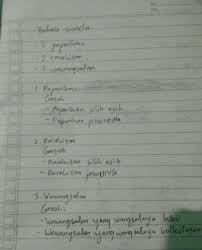 Bahasa sunda
- 2 paparikan
- 2 rarakitan
- 2 wawangsalan
1. Paparikan
Contoh
- Paparikan silih asih
- Paparikan piwuruk
2. Rarakitan
Contoh
- Rarakitan silih asih
- Rarakitan
3. Wawangsalan
Contoh:
- Wawangsalan yang wangsalnya
- Wawangsalan yang wangsalnya